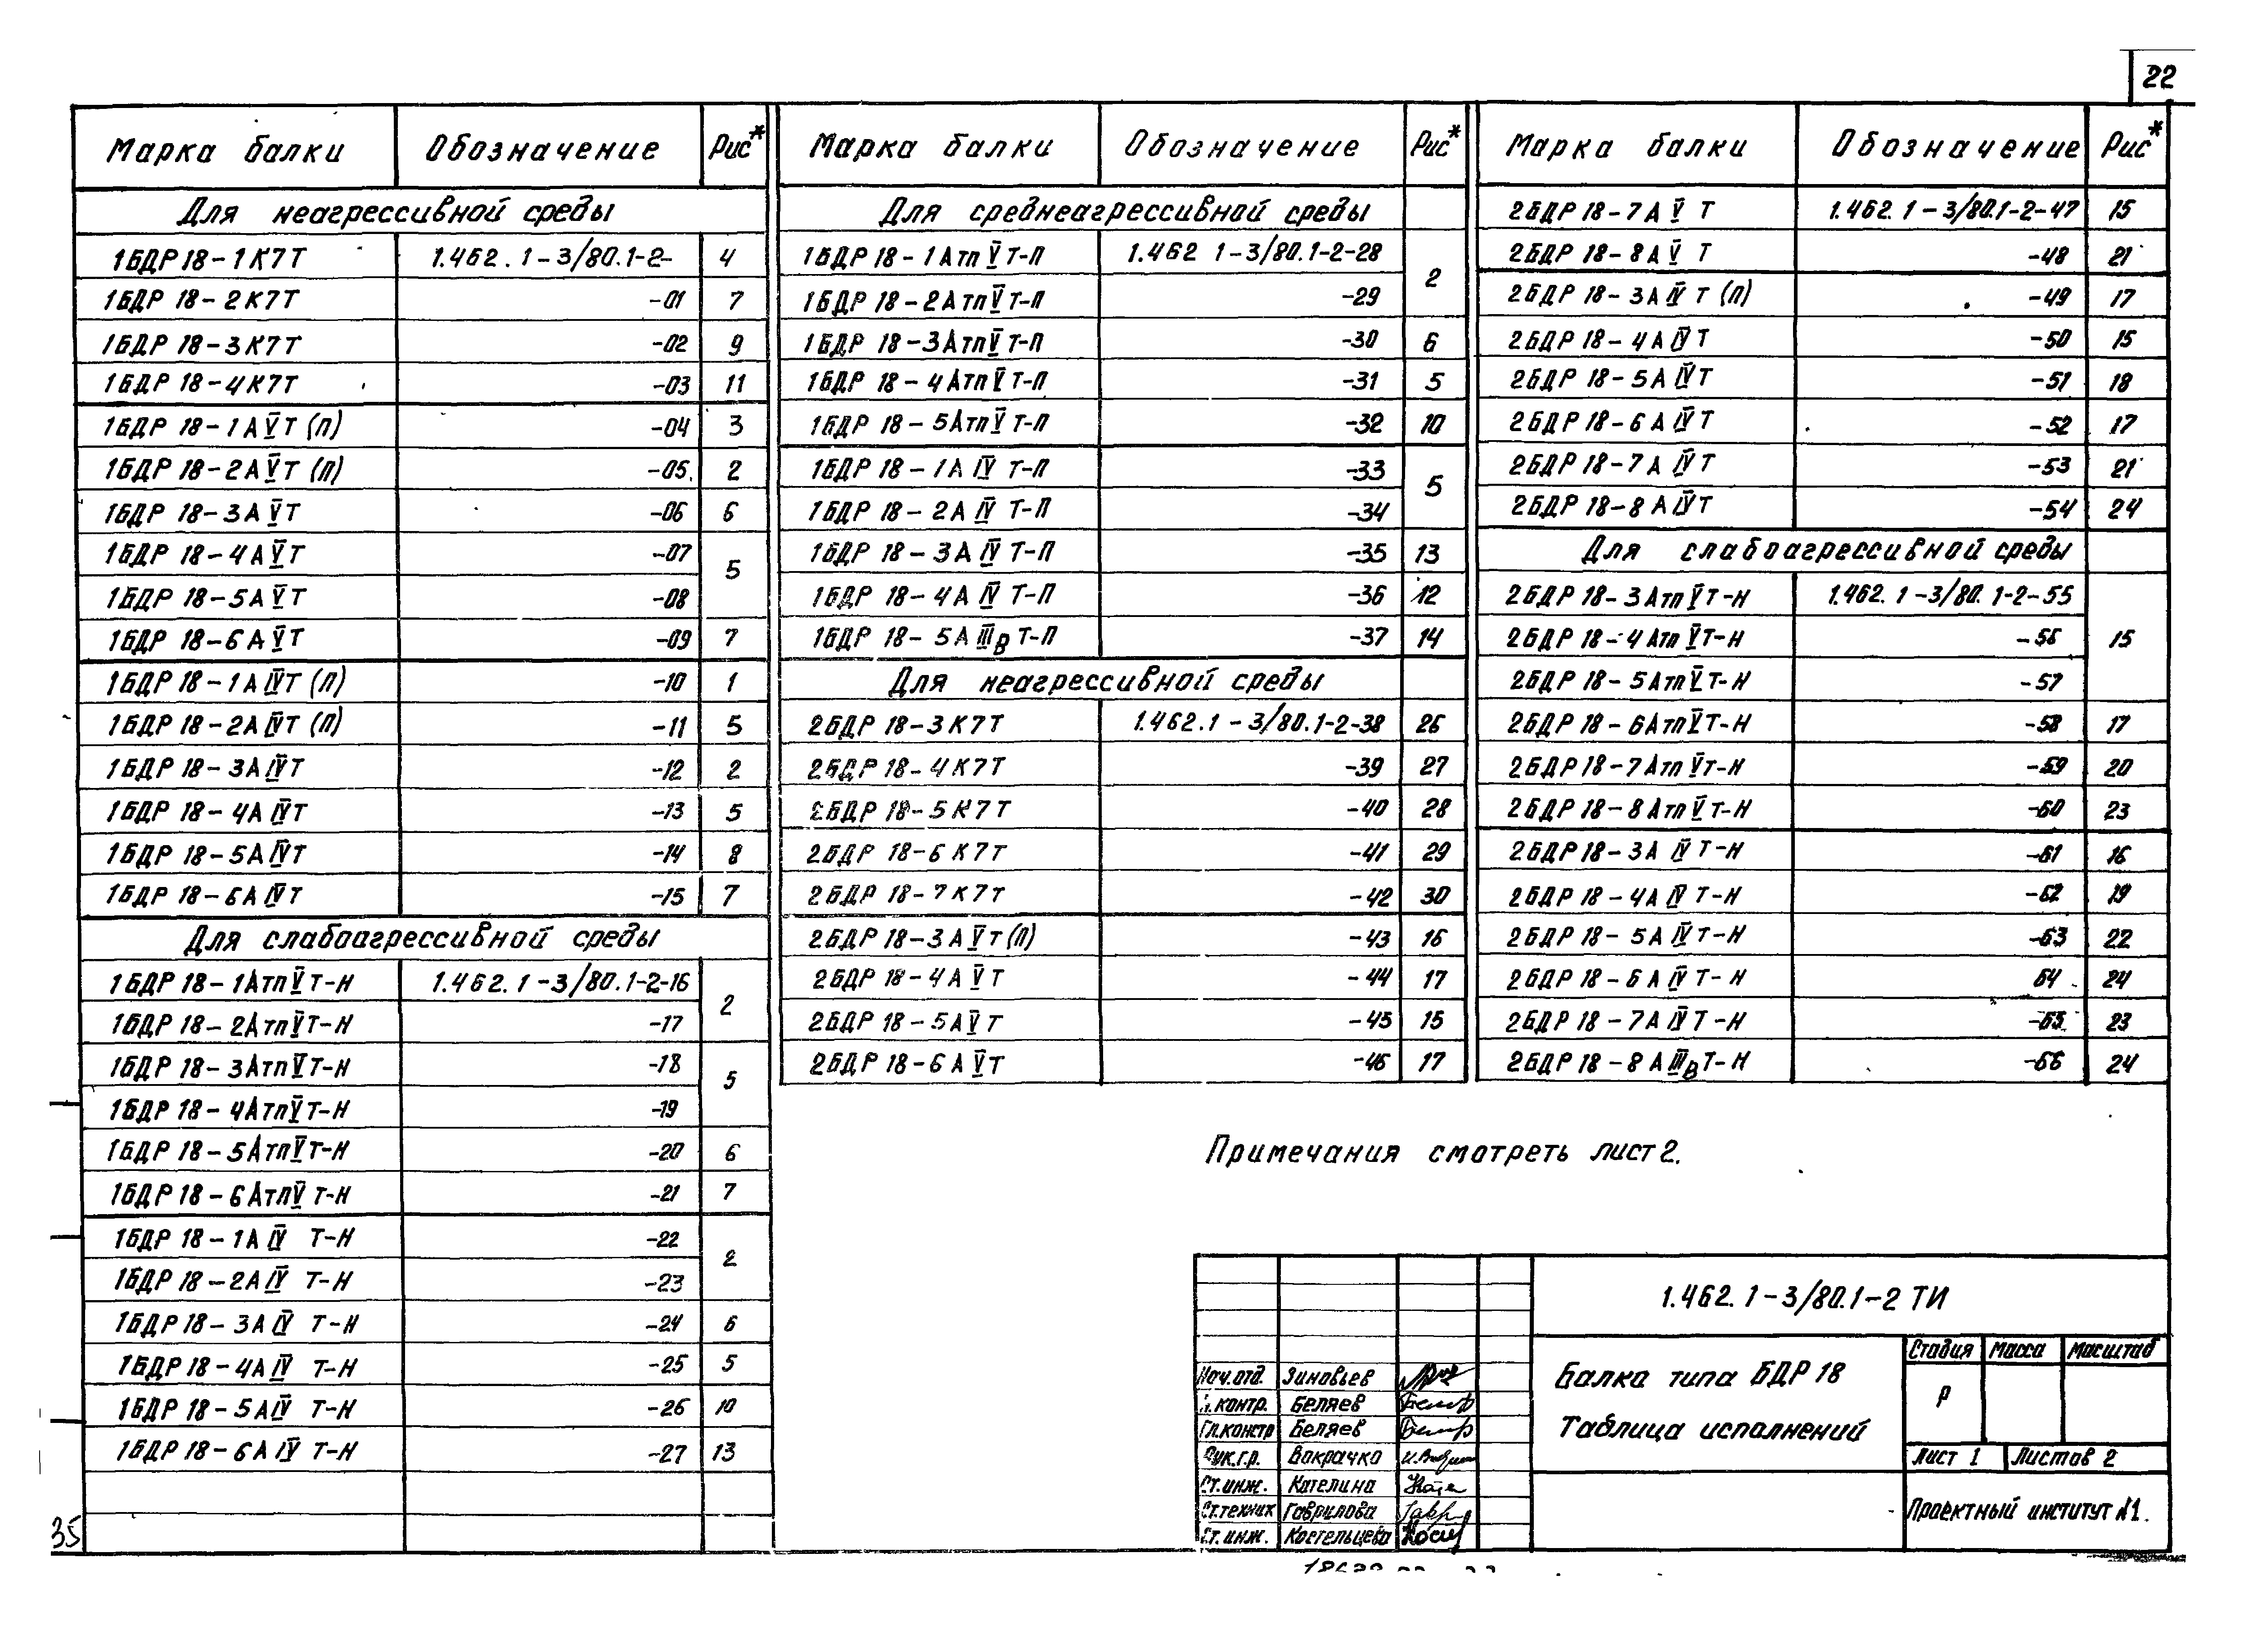 22
Марка балки Обозначение Рис*
Для неагрессивной среды
1БДР 18-1К7Т 1.462.1-3/80.1-2- 4
1БДР 18-2К7Т -01 7
1БДР 18-3К7Т -02 9
1БДР 18-4К7Т -03 11
1БДР 18-1АVТ(П) -04 3
1БДР 18-2АVТ(П) -05 2
1БДР 18-3АVТ -06 6
1БДР 18-4АVТ -07 5
1БДР 18-5АVТ -08
1БДР 18-6АVТ -09 7
1БДР 18-1АIVТ(П) -10 1
1БДР 18-2АIVТ(П) -11 5
1БДР 18-3АIVТ -12 2
1БДР 18-4АIVТ -13 5
1БДР 18-5АIVТ -14 8
1БДР 18-6АIVТ -15 7
Для слабоагрессивной среды
1БДР 18-1АтпVТ-Н 1.462.1-3/80.1-2-16 2
1БДР 18-2АтпVТ-Н -17
1БДР 18-3АтпVТ-Н -18 5
1БДР 18-4АтпVТ-Н -19
1БДР 18-5АтпVТ-Н -20 6
1БДР 18-6АтпVТ-Н -21 7
1БДР 18-1АIV Т-Н -22 2
1БДР 18-2АIV Т-Н -23
1БДР 18-3АIV Т-Н -24 6
1БДР 18-4АIV Т-Н -25 5
1БДР 18-5АIV Т-Н -26 10
1БДР 18-6АIV Т-Н -27 13
35
Марка балки Обозначение Рис*
Для среднеагрессивной среды
1БДР 18-1АтпVТ-П 1.462 1-3/80.1-2-28 2
1БДР 18-2АтпVТ-П -29
1БДР 18-3АтпVТ-П -30 6
1БДР 18-4АтпVТ-П -31 5
1БДР 18-5АтпVТ-П -32 10
1БДР 18-1АIV Т-П -33 5
1БДР 18-2АIV Т-П -34
1БДР 18-3АIV Т-П -35 13
1БДР 18-4АIV Т-П -36 12
1БДР 18-5АIIIв Т-П -37 14
Для неагрессивной среды
2БДР 18-3К7Т 1.462.1-3/80.1-2-38 26
2БДР 18-4К7Т -39 27
2БДР 18-5К7Т -40 28
2БДР 18-6К7Т -41 29
2БДР 18-7К7Т -42 30
2БДР 18-3АVТ(П) -43 16
2БДР 18-4АVТ -44 17
2БДР 18-5АVТ -45 15
2БДР 18-6АVТ -46 17
Марка балки Обозначение Рис*
2БДР 18-7АV Т 1.462.1-3/80.1-2-47 15
2БДР 18-8АV Т -48 21
2БДР 18-3АIV Т(П) -49 17
2БДР 18-4АIVТ -50 15
2БДР 18-5АIVТ -51 18
2БДР 18-6АIVТ -52 17
2БДР 18-7АIVТ -53 21
2БДР 18-8АIVТ -54 24
Для слабоагрессивной среды
2БДР 18-3АтпVТ-Н 1.462.1-3/80.1-2-55 15
2БДР 18-4АтпVТ-Н -56
2БДР 18-5АтпVТ-Н -57
2БДР 18-6АтпVТ-Н -58 17
2БДР 18-7АтпVТ-Н -59 20
2БДР 18-8АтпVТ-Н -60 23
2БДР 18-3АIV Т-Н -61 16
2БДР 18-4АIV Т-Н -62 19
2БДР 18-5АIV Т-Н -63 22
2БДР 18-6АIV Т-Н 64 24
2БДР 18-7АIV Т-Н -65 23
2БДР 18-8АIIIвТ-Н -66 24
Примечания смотреть лист 2.
1.462.1-3/80.1-2 ТИ
Балка типа БДР 18
Таблица исполнений
Стадия Масса Масштаб
Р
Лист 1 Листов 2
Проектный институт №1.
Нач.отд. Зиновьев
Н.контр. Беляев
Гл.констр Беляев
Рук.гр. Вокрачко
Ст.инж. Кателина
Ст.техник Гаврилова
Ст.инж. Костельцева